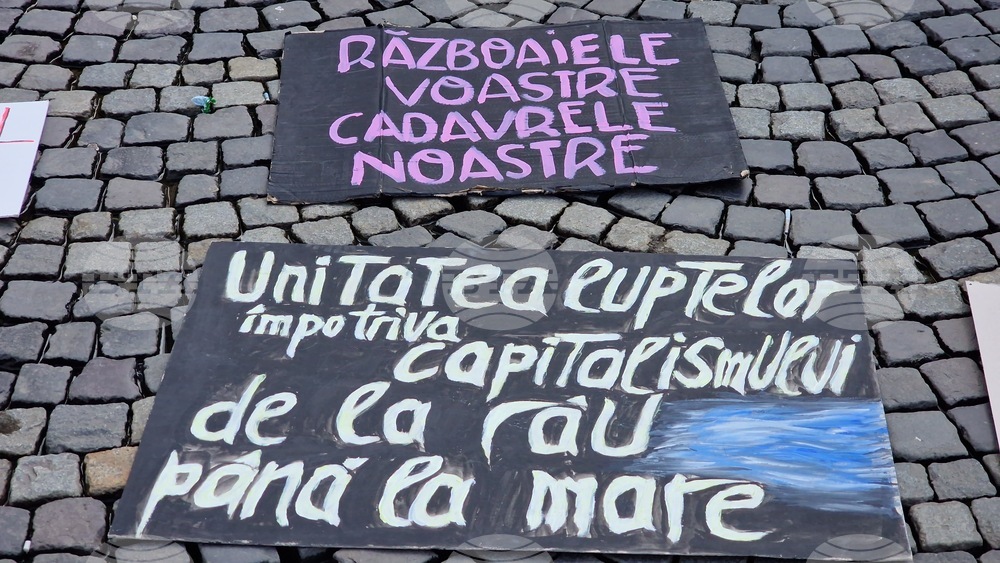 RĂZBOAIELE
VOASTRE
CADAVRELE
NOASTRE
Unitatea luptelor
împotriva
capitalismului
de la râu
până la mare